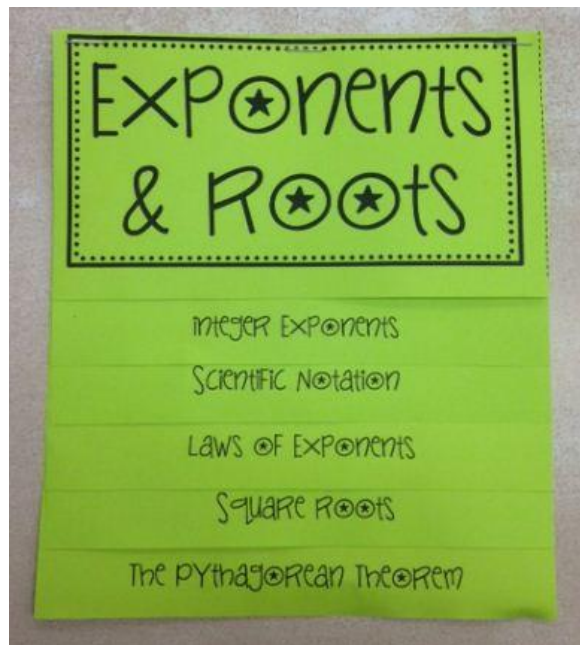 Exponents
& Roots
Integer Exponents
Scientific Notation
Laws of Exponents
Square Roots
The Pythagorean Theorem